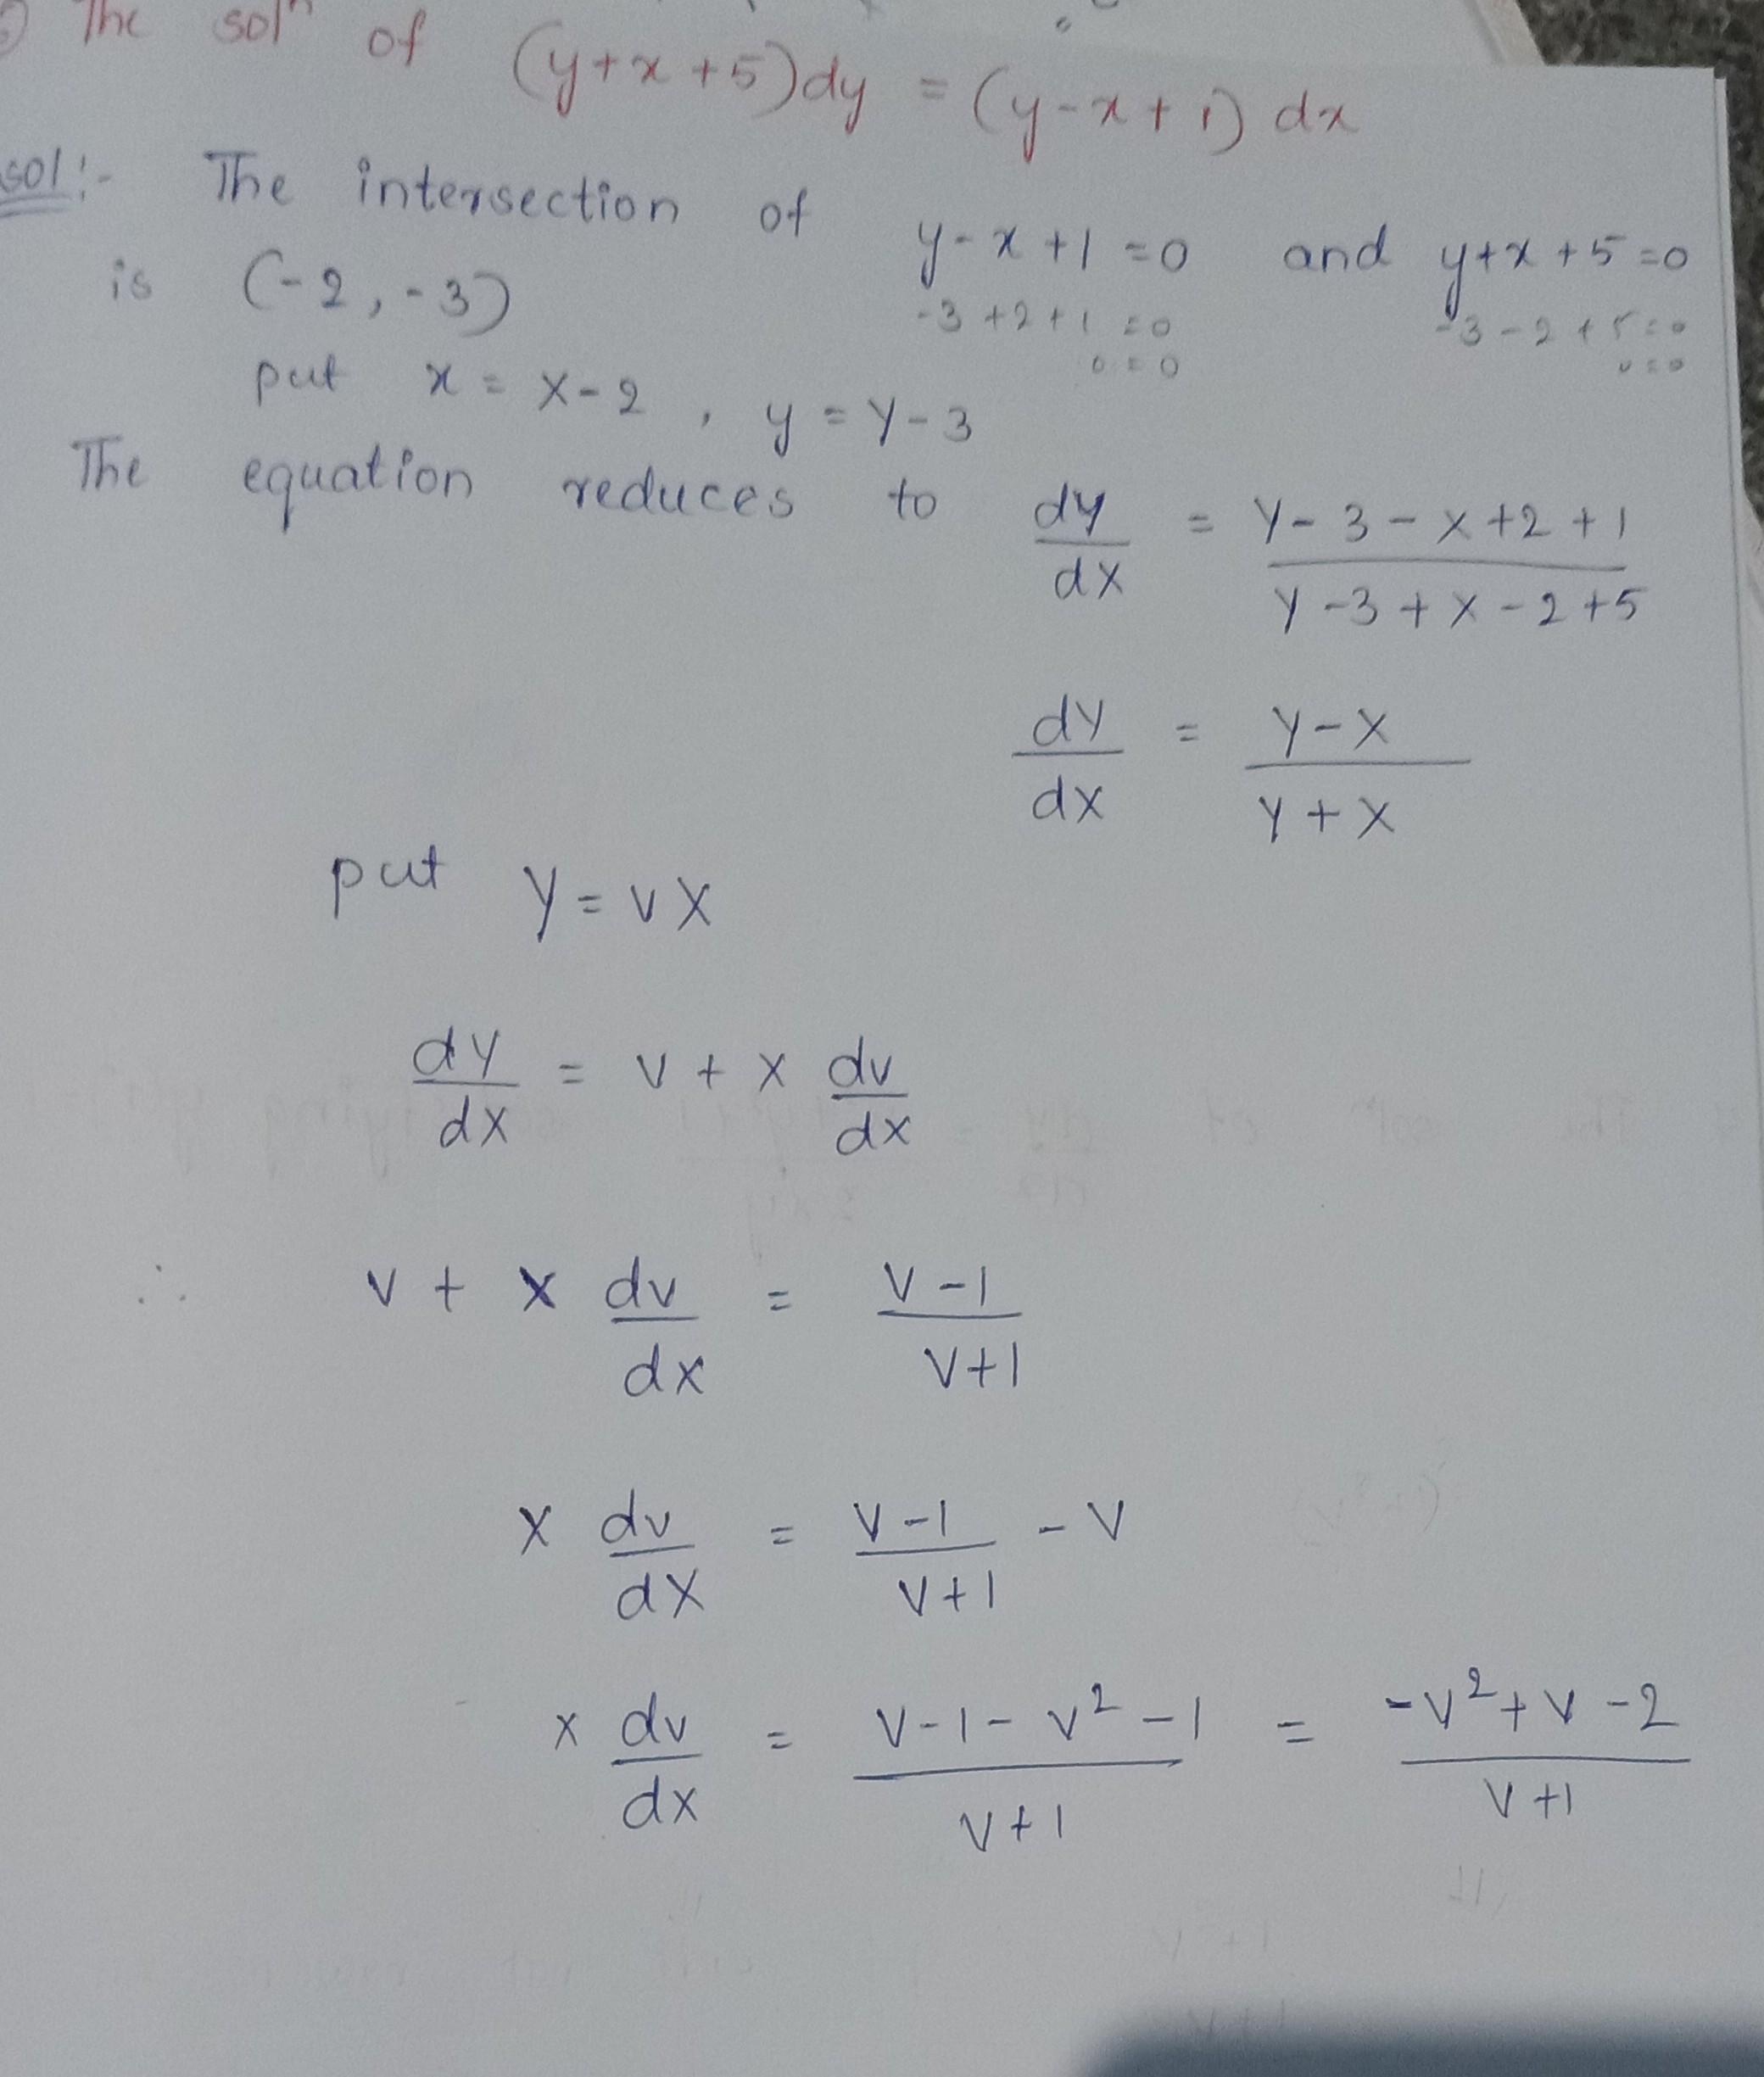 The solⁿ of (y+x+5)dy = (y-x+1) dx
sol:- The intersection of y-x+1=0 and y+x+5=0
is (-2,-3)
-3+2+1=0
-3-2+5=0
0=0
0=0
put x = X-2, y = Y-3
The equation reduces to dy/dx = Y-3-X+2+1/Y-3+X-2+5
dY/dX = Y-X/Y+X
put Y=vX
dY/dX = v + X dv/dX
∴ v + X dv/dX = v-1/v+1
X dv/dX = v-1/v+1 - v
X dv/dX = v-1-v²-1/v+1 = -v²+v-2/v+1